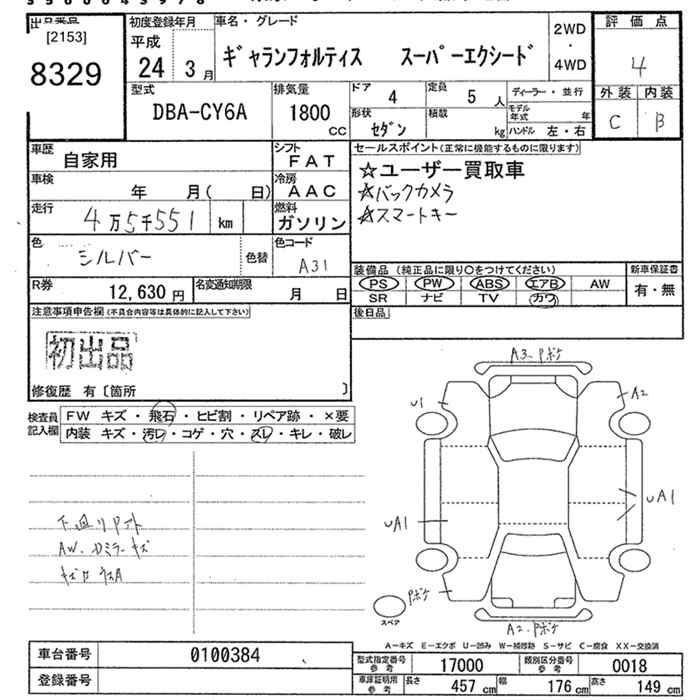 出品票
[2153]
8329
初度登録年月
平成
24 3月
車名・グレード
ギャランフォルティス スーパーエクシード
2WD
・
4WD
評価点
4
外装 内装
C B
型式
DBA-CY6A
排気量
1800
CC
ドア 4
定員 5 人
形状 セダン
積載 kg
ディーラー・並行
モデル年式 年
ハンドル 左・右
車歴 自家用
シフト FAT
車検 年 月( 日)
冷房 AAC
走行 4万5千551 km
燃料 ガソリン
色 シルバー
色替
色コード A31
R券 12,630 円
名変通知期限 月 日
セールスポイント(正常に機能するものに限ります)
☆ユーザー買取車
☆バックカメラ
☆スマートキー
装備品(純正品に限り○をつけてください)
PS PW ABS エアB AW
SR ナビ TV カワ
新車保証書
有・無
後日品
注意事項申告欄(不具合内容等は具体的に記入して下さい)
初出品
修復歴 有〔箇所 〕
検査員記入欄
FW キズ・飛石・ヒビ割・リペア跡・×要
内装 キズ・汚レ・コゲ・穴・スレ・キレ・破レ
AW.Dミラーキズ
A3.Pボケ
U1
A2
UA1
UA1
Pボケ
スペア
A2.Pボケ
A－キズ E－エクボ U－凹み W－補修跡 S－サビ C－腐食 XX－交換済
車台番号 0100384
登録番号
型式指定番号 参考 17000
類別区分番号 参考 0018
車庫証明用 参考 長さ 457 cm 幅 176 cm 高さ 149 cm